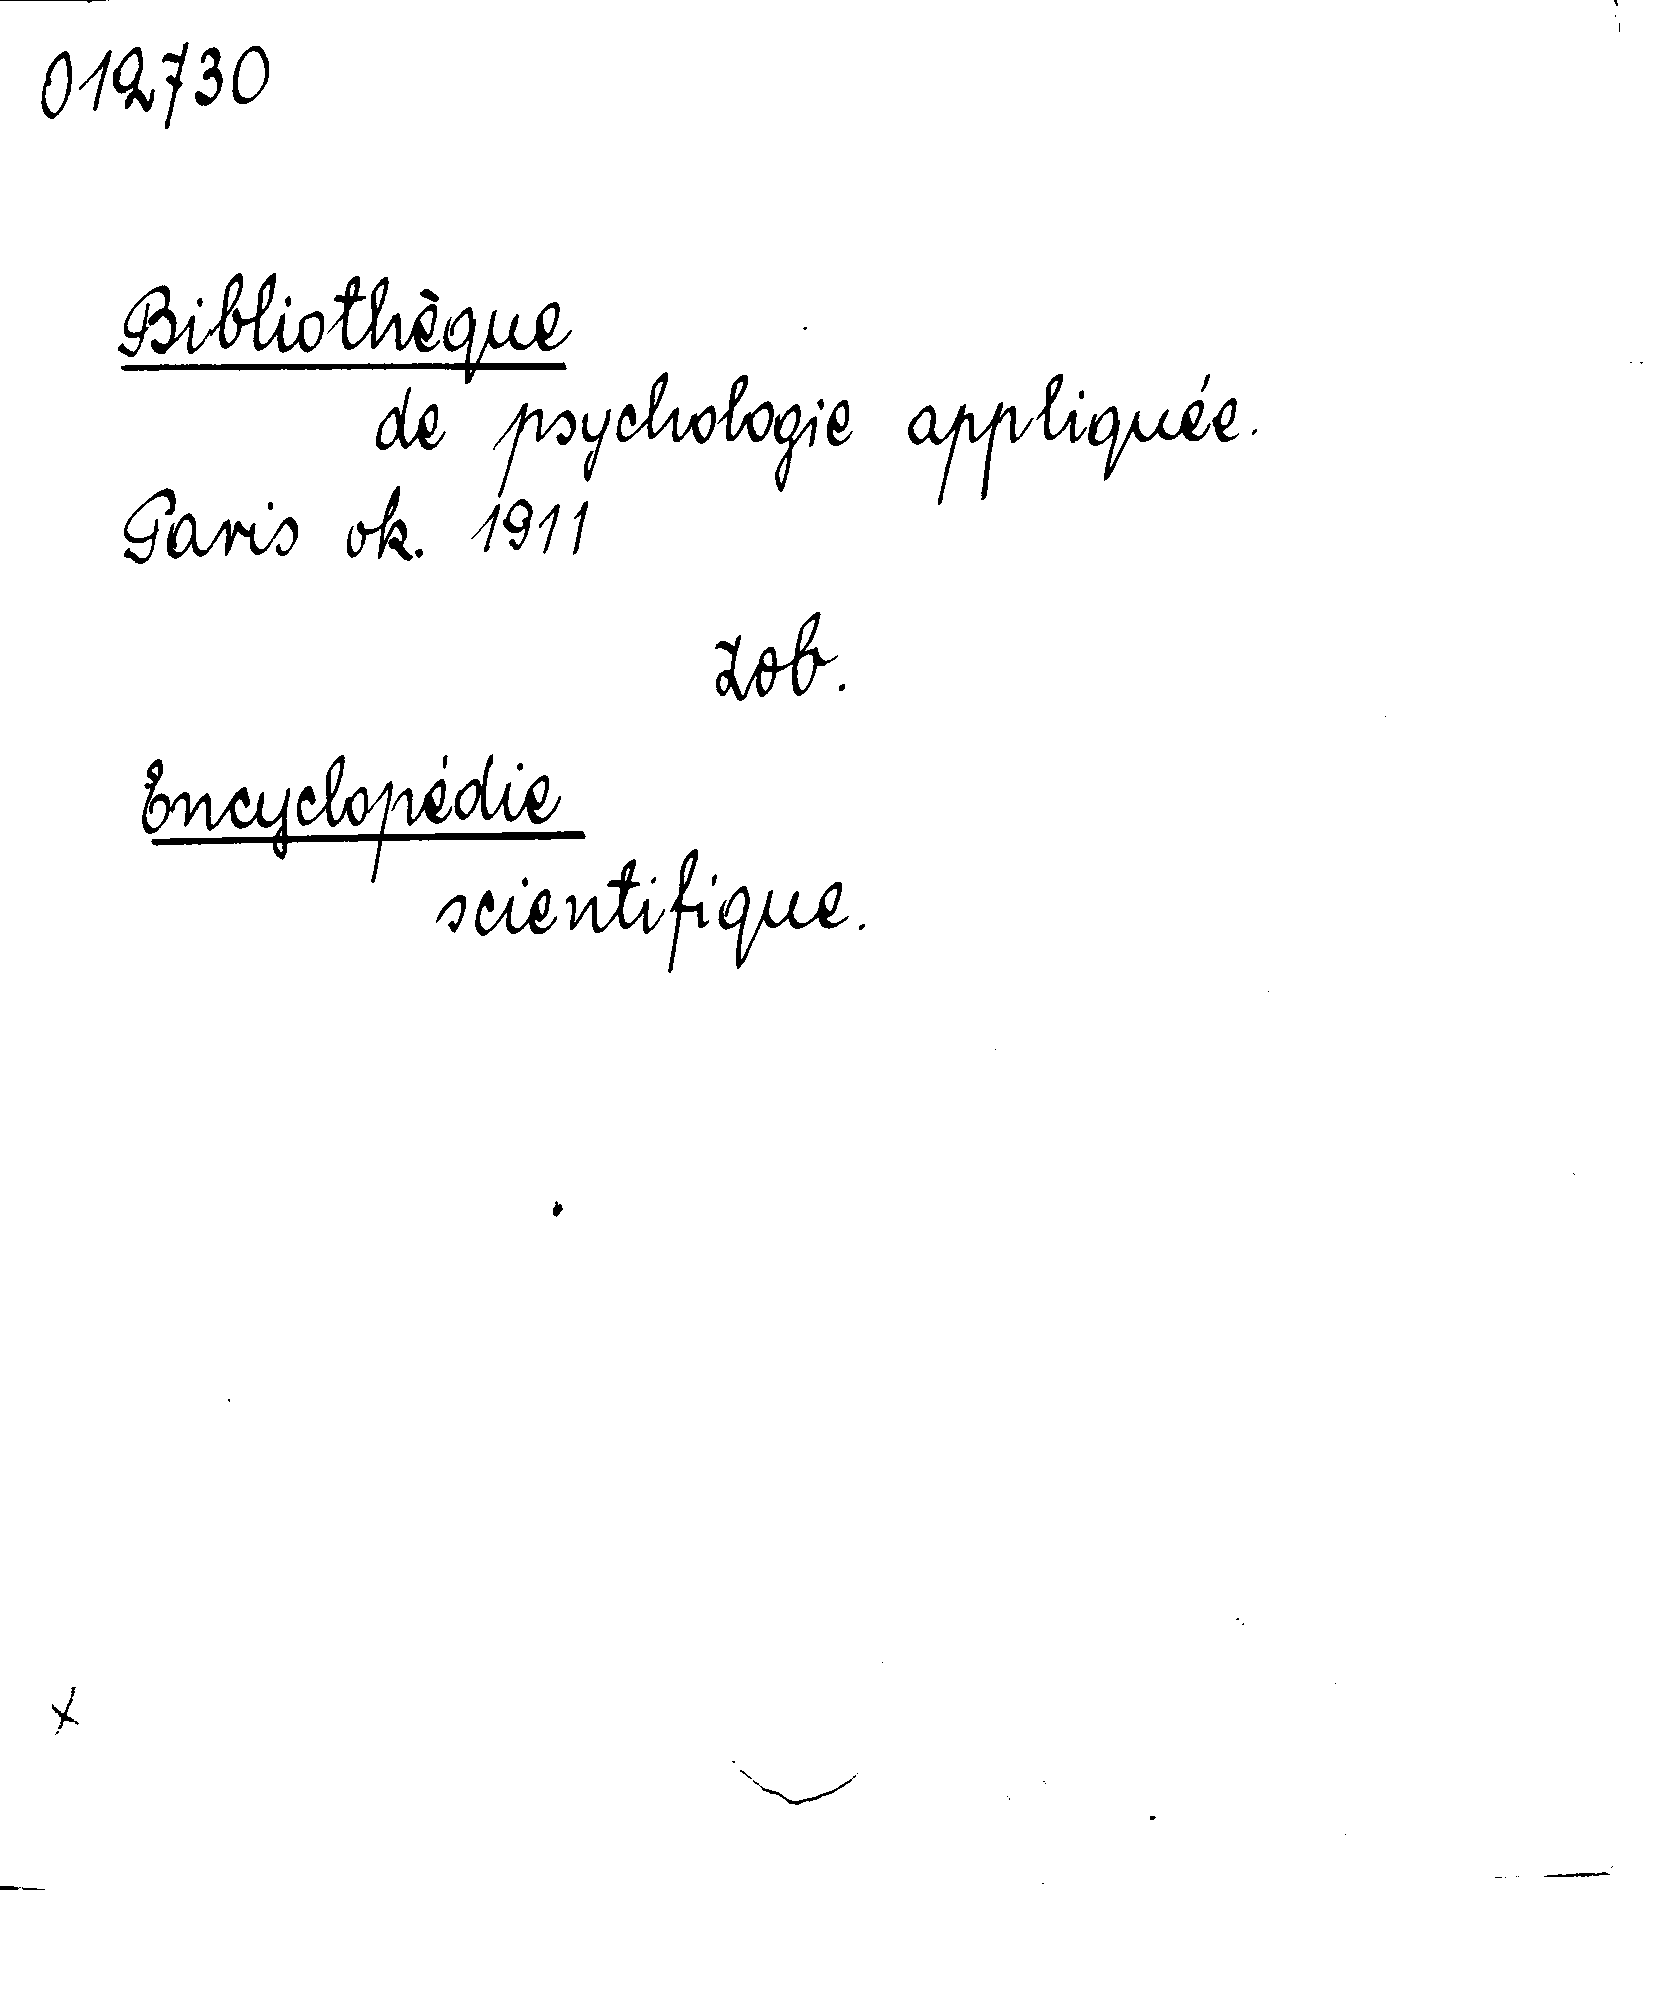 012730
Bibliothèque
de psychologie appliquée.
Paris ok. 1911
zob.
Encyclopédie
scientifique.
x